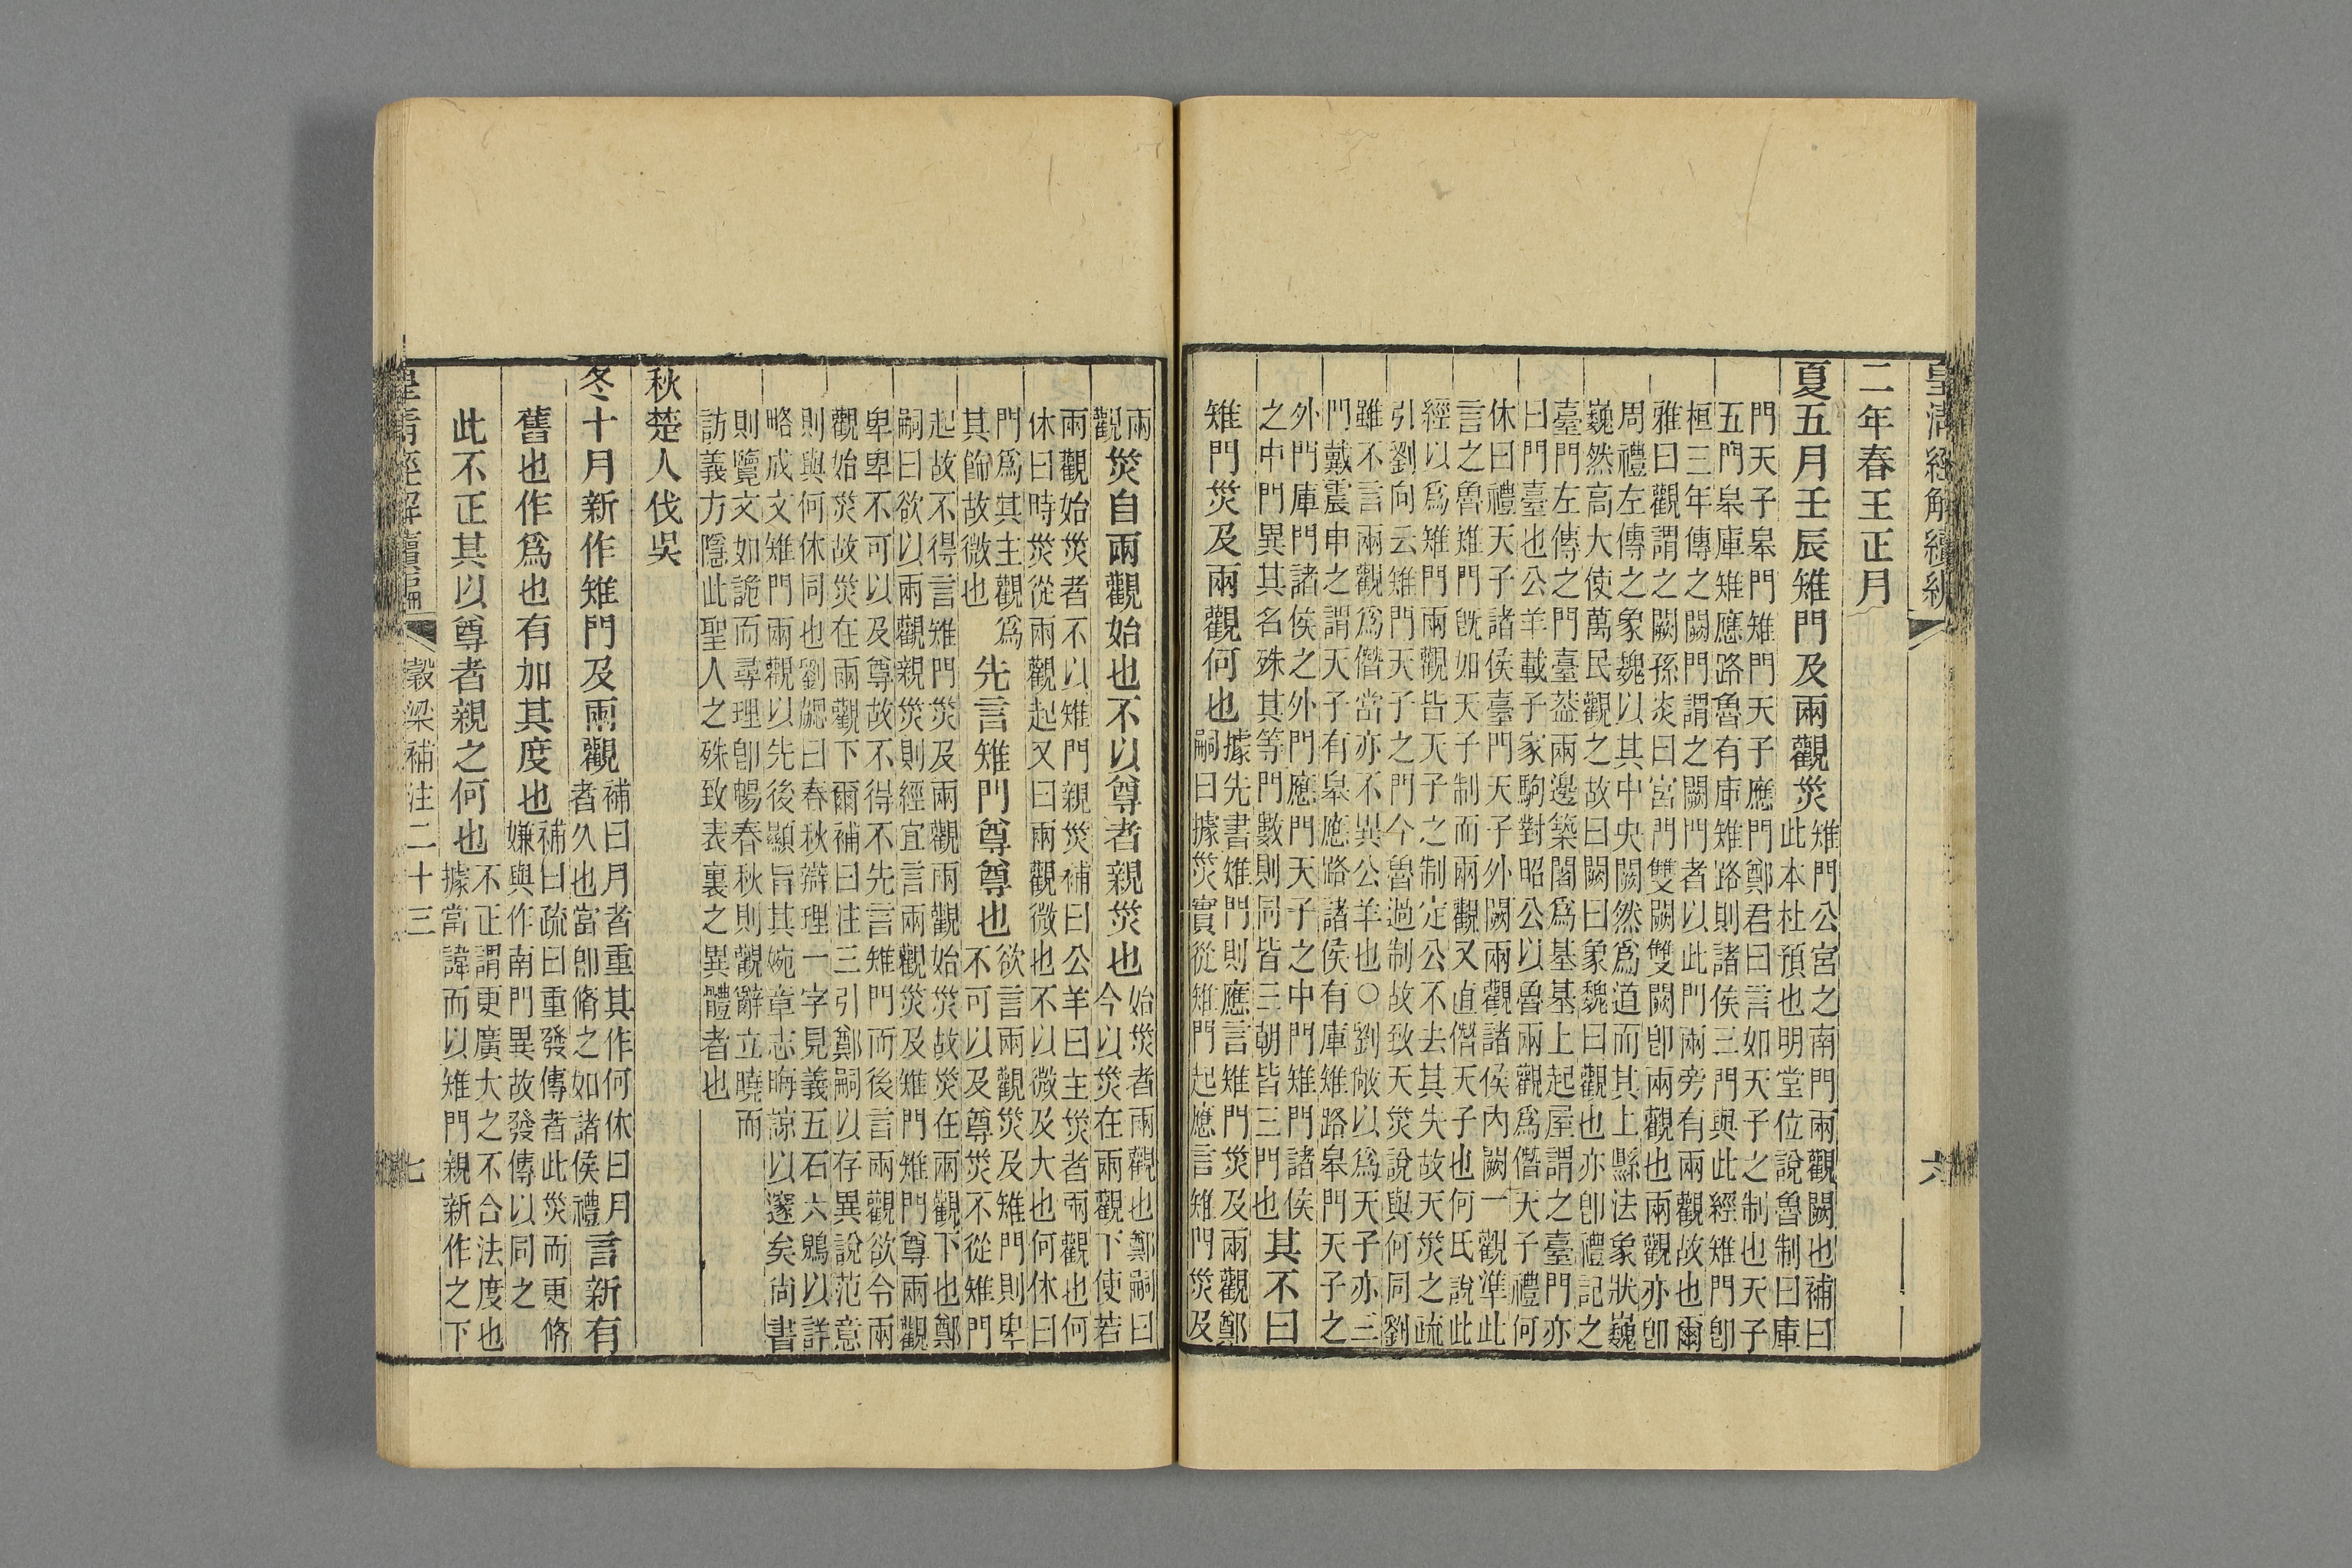 皇清經解續編
六
二年春王正月
夏五月壬辰雉門及兩觀災
雉門公宮之南門兩觀闕也補曰
此本杜預也明堂位說魯制曰庫
門天子皋門雉門天子應門鄭君曰言如天子之制也天子
五門皋庫雉應路魯有庫雉路則諸侯三門與此經雉門卽
桓三年傳之闕門謂之闕門者以此門兩旁有兩觀故也爾
雅曰觀謂之闕孫炎曰宮門雙闕雙闕卽兩觀也兩觀亦卽
周禮左傳之象魏以其中央闕然爲道而其上縣法象狀巍
巍然高大使萬民觀之故曰闕曰象魏曰觀也亦卽禮記之
臺門左傳之門臺葢兩邊築闍爲基基上起屋謂之臺門亦
曰門臺也公羊載子家駒對昭公以魯兩觀爲僭天子禮何
休曰禮天子諸侯臺門天子外闕兩觀諸侯內闕一觀準此
言之魯雉門旣如天子制而兩觀又直僭天子也何氏說此
經以爲雉門兩觀皆天子之制定公不去其失故天災之疏
引劉向云雉門天子之門今魯過制故致天災說與何同劉
雖不言兩觀爲僭當亦不異公羊也○劉敞以爲天子亦三
門戴震申之謂天子有皋應路諸侯有庫雉路皋門天子之
外門庫門諸侯之外門應門天子之中門雉門諸侯
之中門異其名殊其等門數則同皆三朝皆三門也
其不曰
雉門災及兩觀何也
據先書雉門則應言雉門災及兩觀鄭
嗣曰據災實從雉門起應言雉門災及
兩
觀
災自兩觀始也不以尊者親災也
始災者兩觀也鄭嗣曰
今以災在兩觀下使若
兩觀始災者不以雉門親災補曰公羊曰主災者兩觀也何
休曰時災從兩觀起又曰兩觀微也不以微及大也何休曰
門爲其主觀爲
其飾故微也
先言雉門尊尊也
欲言兩觀災及雉門則卑
不可以及尊災不從雉門
起故不得言雉門災及兩觀兩觀始災故災在兩觀下也鄭
嗣曰欲以兩觀親災則經宜言兩觀災及雉門雉門尊兩觀
卑卑不可以及尊故不得不先言雉門而後言兩觀欲令兩
觀始災故災在兩觀下爾補曰注三引鄭嗣以存異說范意
則與何休同也劉勰曰春秋辯理一字見義五石六鷁以詳
略成文雉門兩觀以先後顯旨其婉章志晦諒以邃矣尚書
則覽文如詭而尋理卽暢春秋則觀辭立曉而
訪義方隱此聖人之殊致表裏之異體者也
秋楚人伐吳
冬十月新作雉門及兩觀
補曰月者重其作何休曰月
者久也當卽脩之如諸侯禮
言新有
舊也作爲也有加其度也
補曰疏曰重發傳者此災而更脩
嫌與作南門異故發傳以同之
此不正其以尊者親之何也
不正謂更廣大之不合法度也
據當諱而以雉門親新作之下
皇清經解續編
穀梁補注二十三
七